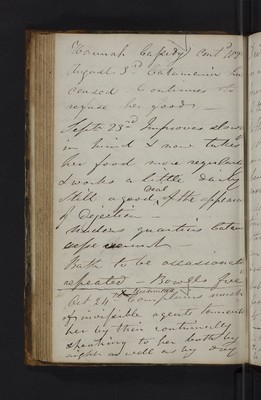 Hannah Cassidy contd
August 3d Catamenia has
ceased Continues to
refuse her food —
Septr 23rd Improves slowly
in mind & now takes
her food more regularly
& works a little daily
Still a good deal of the appearance
of Dejection —
Bath to be occasionally
repeated — Bowels free
Oct 24th Complains much
of invisible agents tormenting
her by their continually
speaking to her both by
night as well as by day